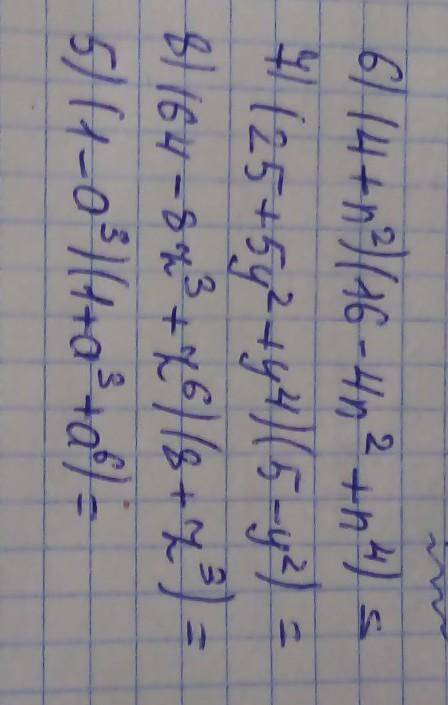 6) (4+n²)(16-4n²+n⁴)=
7) (25+5y²+y⁴)(5-y²)=
8) (64-8z³+z⁶)(8+z³)=
5) (1-a³)(1+a³+a⁶)=